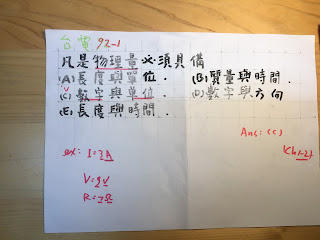 台電 92-1
凡是物理量必須具備
(A)長度與單位. (B)質量與時間.
(C)數字與單位. (D)數字與方向
(E)長度與時間.
Ans: (C)
(Ch1-2)
ex: I=3A
V=9V